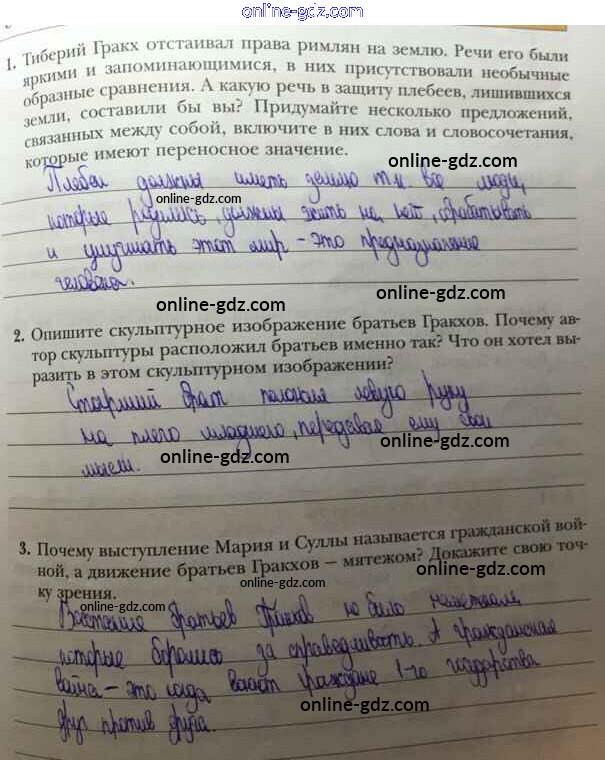 online-gdz.com
1. Тиберий Гракх отстаивал права римлян на землю. Речи его были
яркими и запоминающимися, в них присутствовали необычные
образные сравнения. А какую речь в защиту плебеев, лишившихся
земли, составили бы вы? Придумайте несколько предложений,
связанных между собой, включите в них слова и словосочетания,
которые имеют переносное значение.
online-gdz.com
Плебеи должны иметь землю т.к. все люди,
которые родились, должны жить на ней, обрабатывать
и улучшать этот мир – это предназначение
человека.
online-gdz.com
online-gdz.com
2. Опишите скульптурное изображение братьев Гракхов. Почему ав-
тор скульптуры расположил братьев именно так? Что он хотел вы-
разить в этом скульптурном изображении?
online-gdz.com
Старший брат положил левую руку
на плечо младшего, передавая ему свои
online-gdz.com
мысли.
online-gdz.com
3. Почему выступление Мария и Суллы называется гражданской вой-
ной, а движение братьев Гракхов – мятежом? Докажите свою точ-
ку зрения.
online-gdz.com
online-gdz.com
Восстание братьев Гракхов но было мятежом
которые боролись за справедливость. А гражданская
online-gdz.com
война – это когда воюют граждане 1-го государства
друг против друга.
online-gdz.com